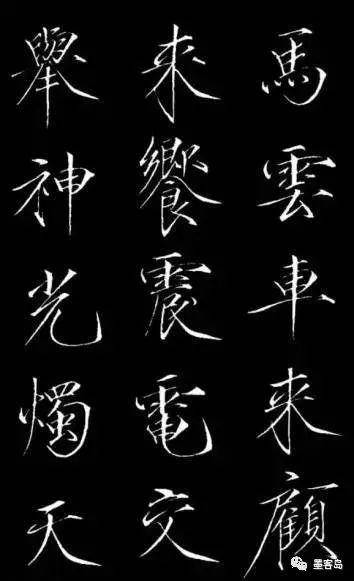 馬雲車来顧
来饗震電交
舉神光燭天
墨客岛